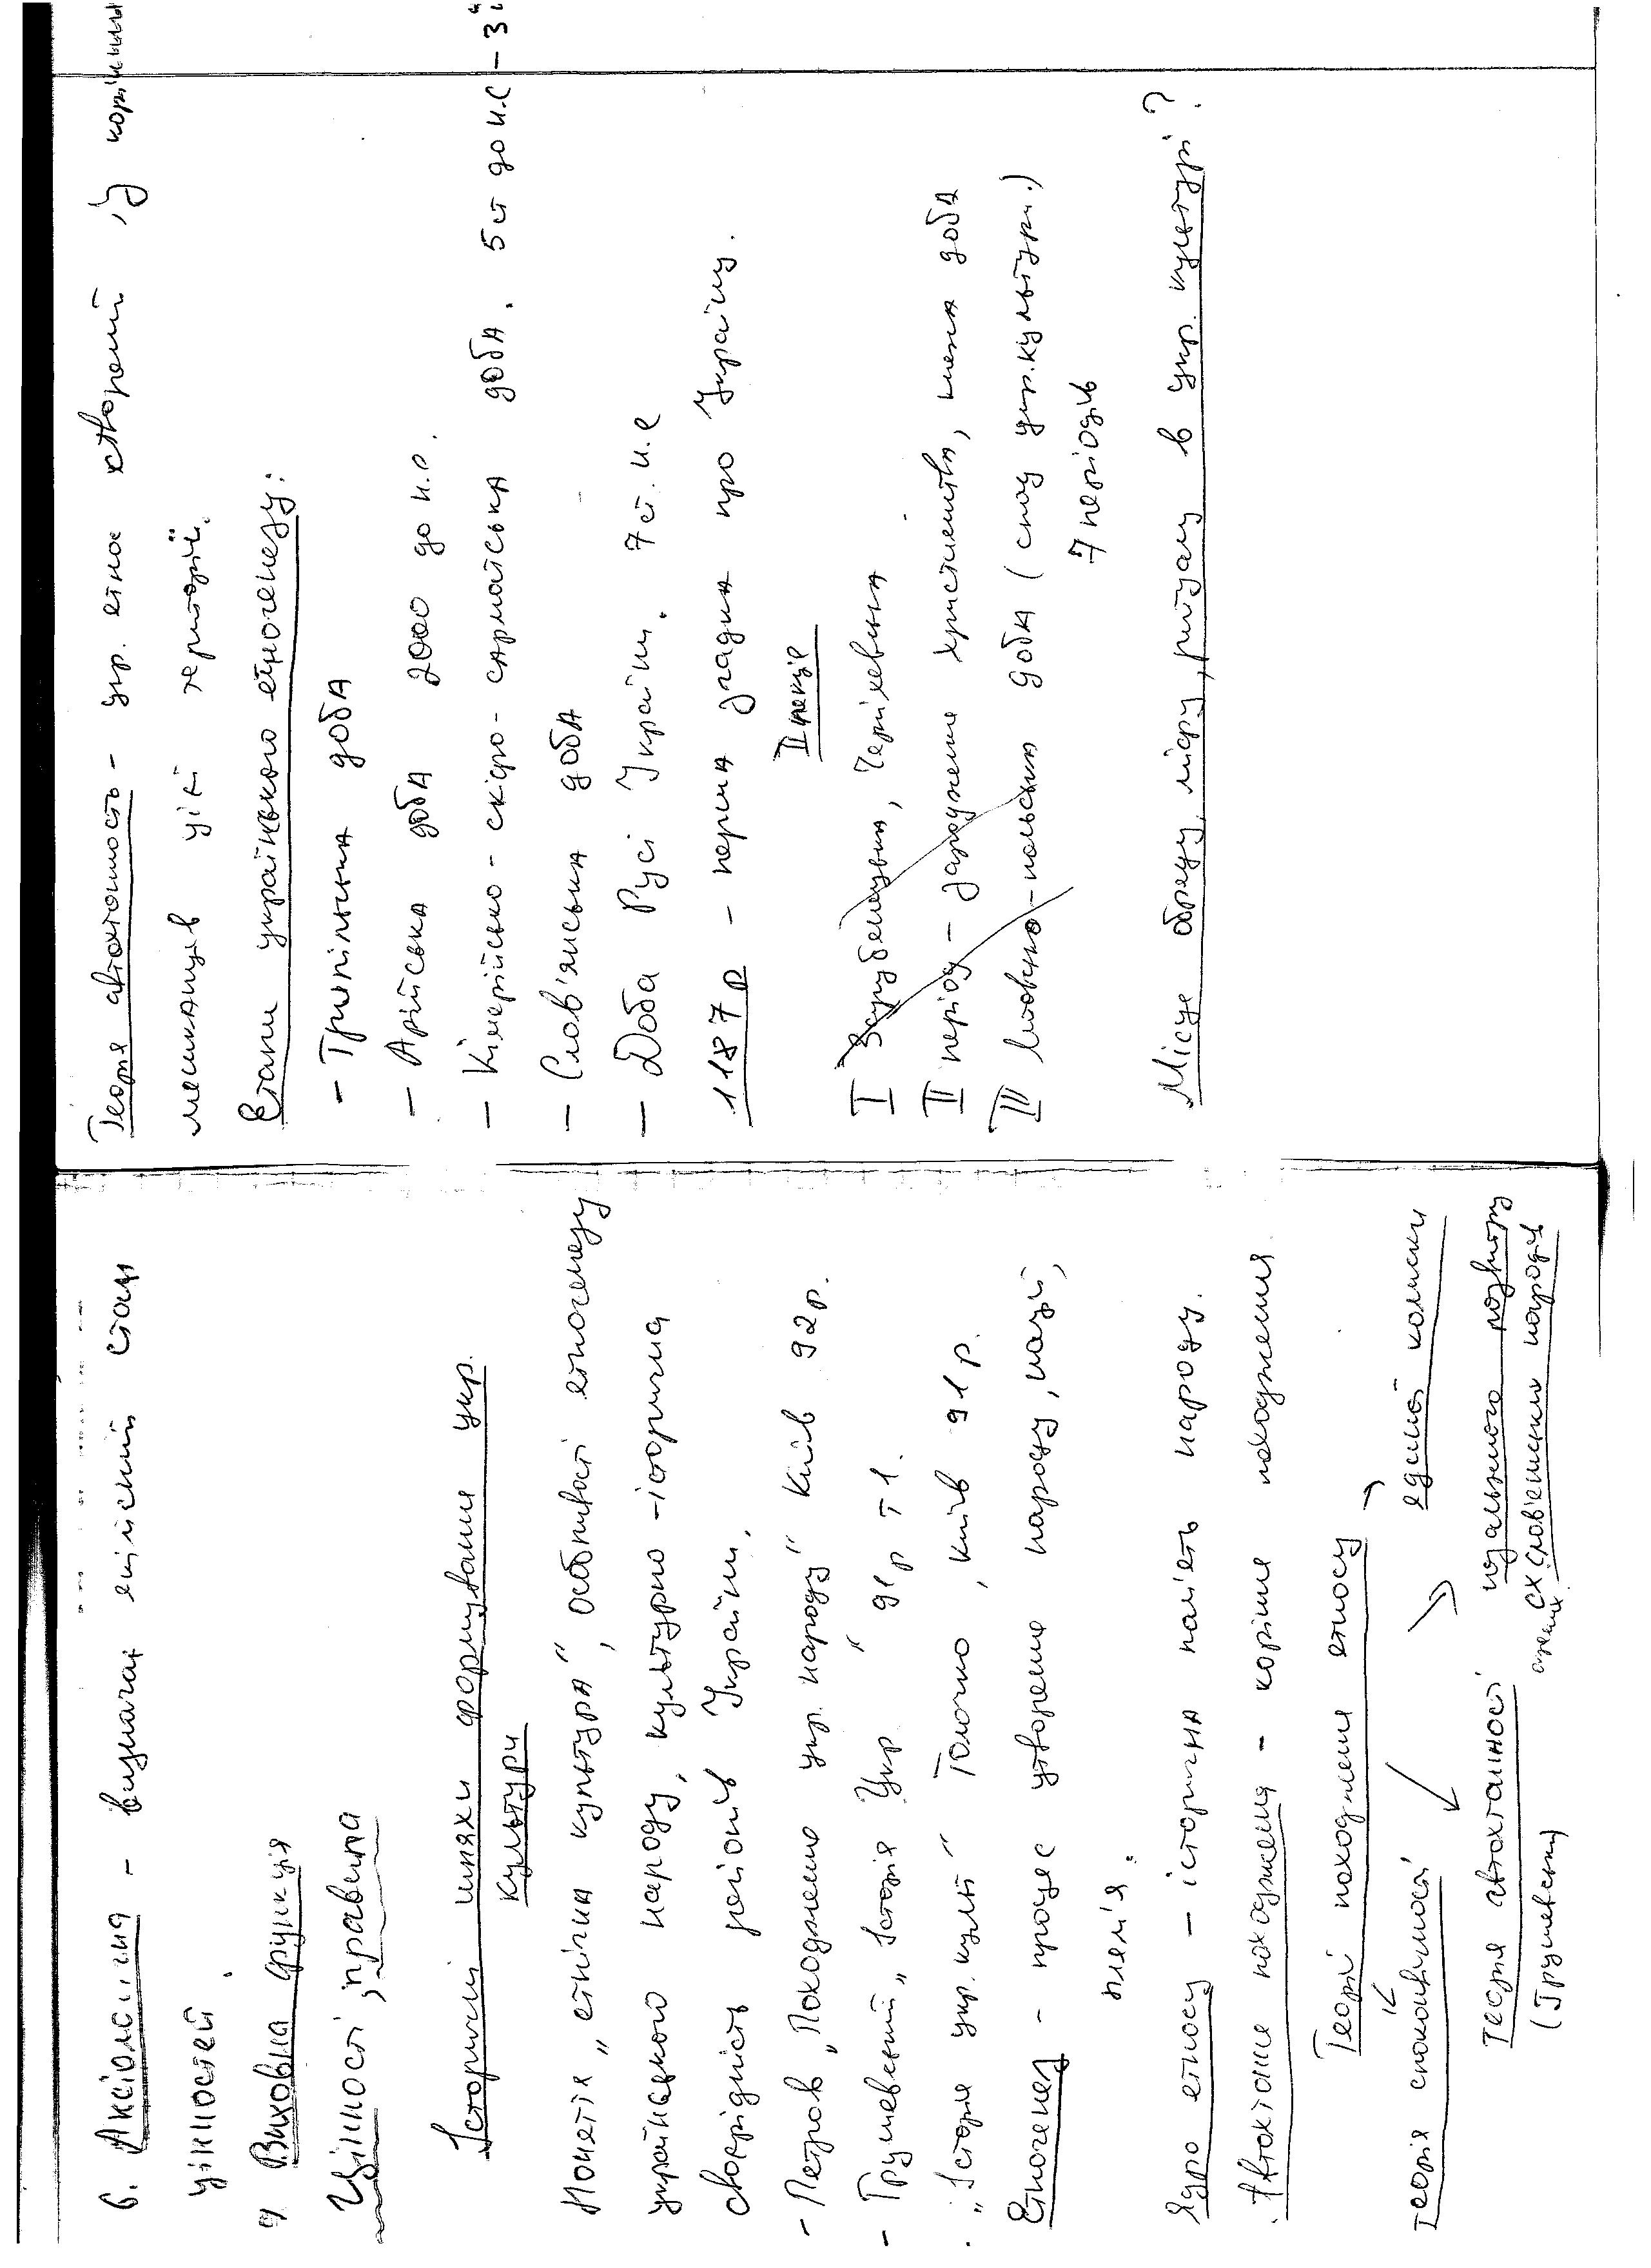 6. Аксіологічна - визначає якісний стан
цінностей.
7 Виховна функція
Цінності, правила
Історичні шляхи формування укр.
культури
Поняття „етнічна культура", особливості етногенезу
українського народу, культурно-історична
своєрідність регіонів України.
- Петров „Походження укр. народу" Київ 92р.
- Грушевський „Історія Укр" 91р т 1.
. „Історія укр. культ" Толочко, Київ 91р.
Етногенез - процес утворення народу, нації,
плем'я.
Ядро етносу - історична пам'ять народу.
Автохтонне походження - корінне походження.
Теорії походження етносу
Теорія споконвічності
єдиної колиски
Теорія автохтанності
(Грушевський)
уцального розвитку
сх. слов'янських народів
Теорія автохтонность - укр. етнос створений із корінных
мешканців цієї території.
Етапи українського етногенезу:
- Трипільська доба
- Арійська доба 2000 до н.е.
- Кімерійсько-скіфо-сарматська доба. 5 ст до н.е - 3
- Слов'янська доба
- Доба Русі України. 7 ст. н.е
1187 р - перша згадка про Україну.
II лекція
I Зарубенецька, Черняхевська
II період - зародження християнства, княжа доба
III литовсько-польська доба (спад укр. культури.)
7 періодів
Місце обряду, міфу, ритуалу в укр. культурі?